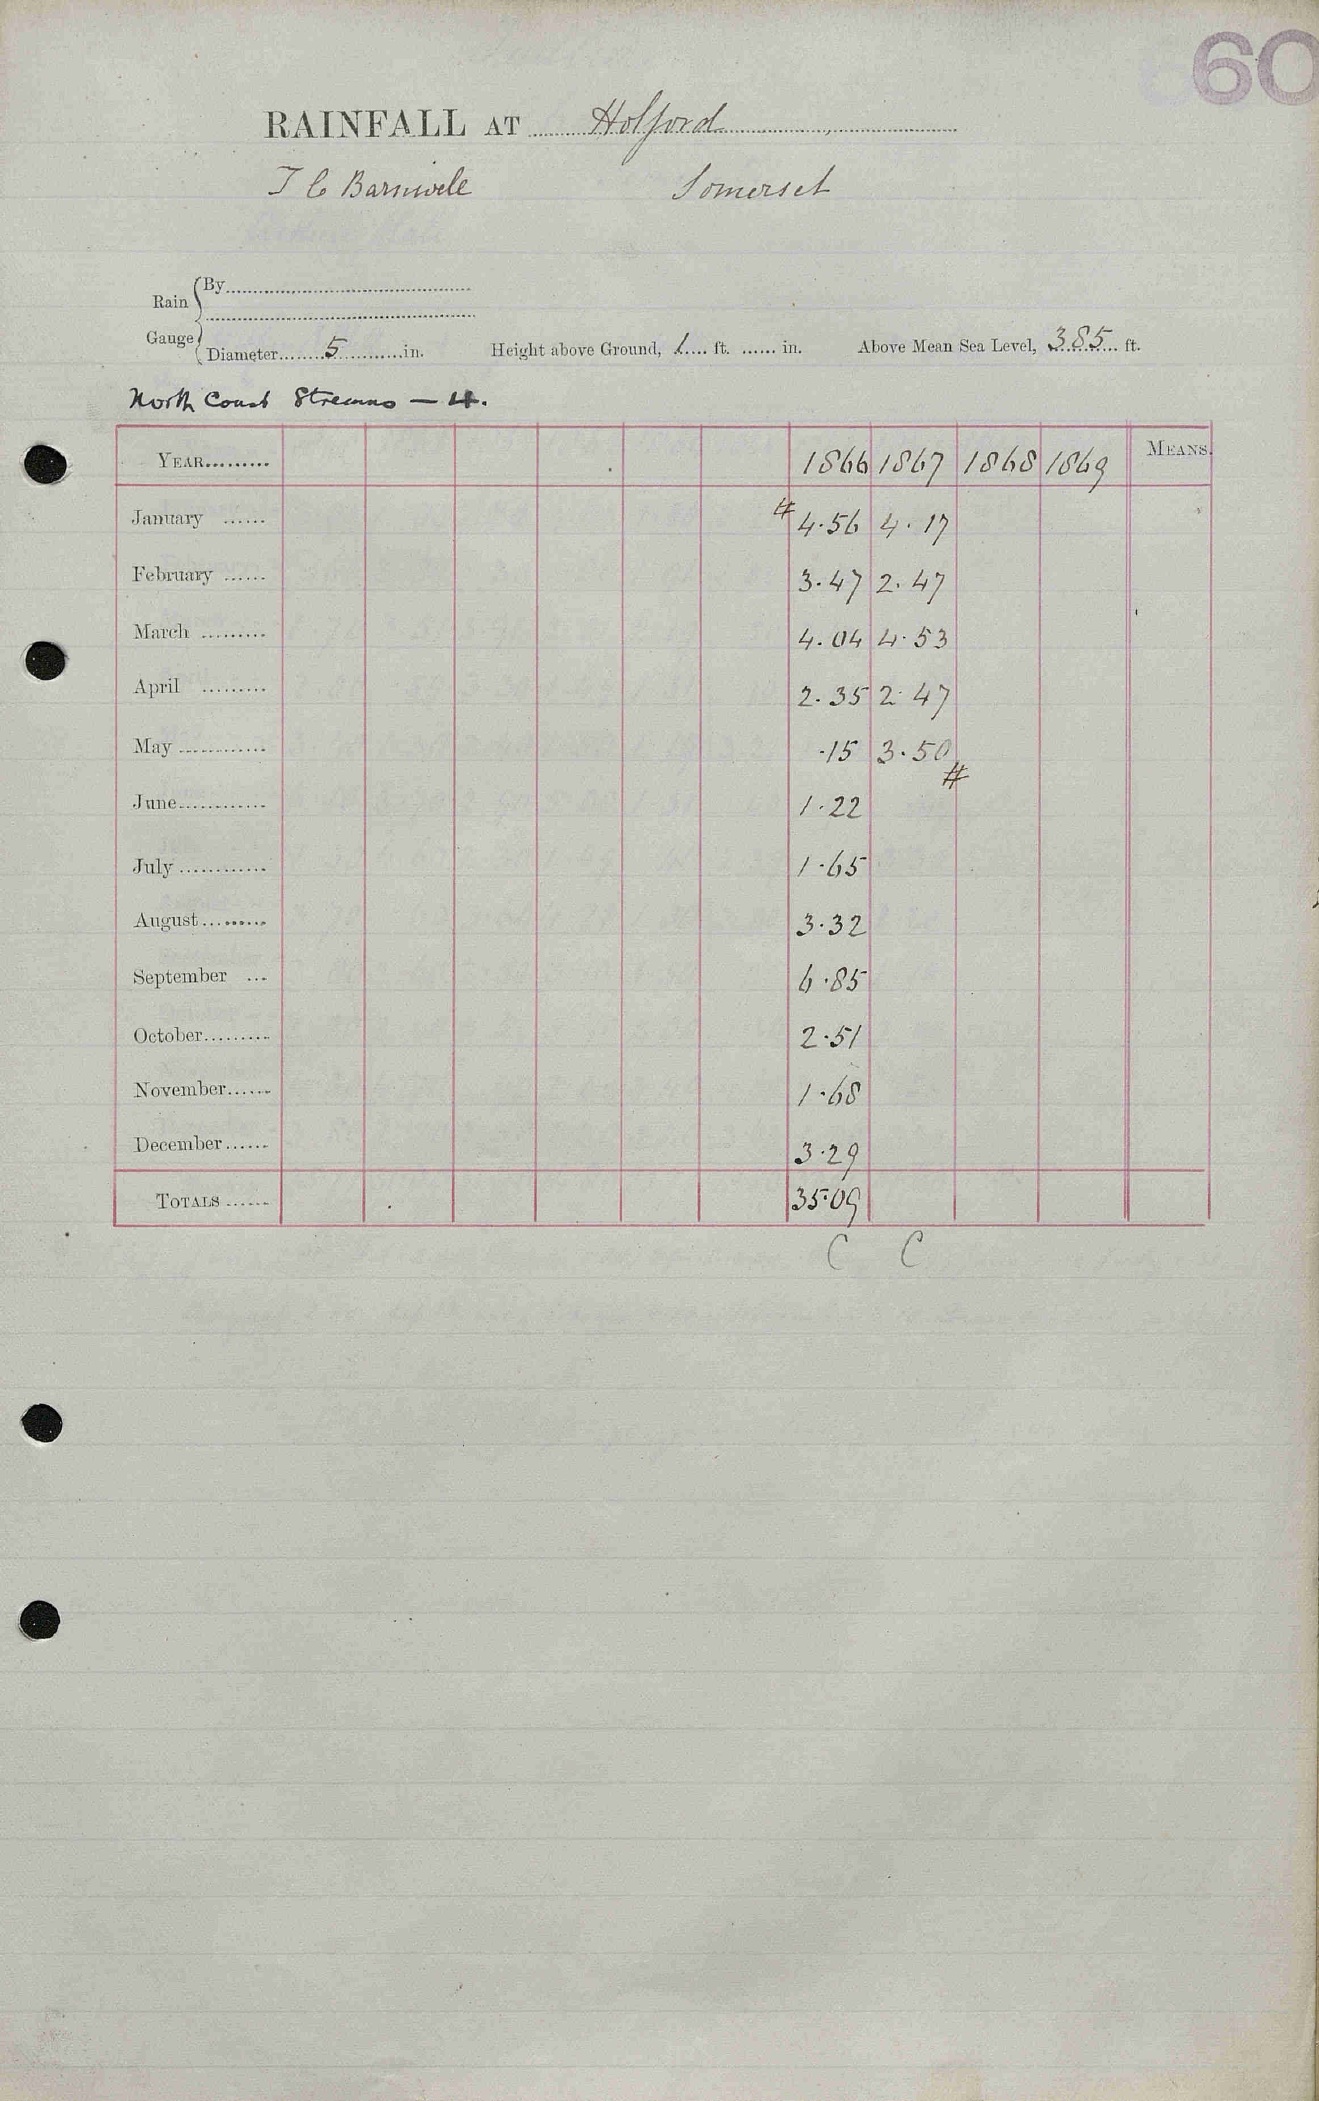 60
RAINFALL AT Holford
T C Barnwell Somerset
Rain Gauge
By
Diameter 5 in. Height above Ground, 1 ft. in. Above Mean Sea Level, 385 ft.
North Coast Streams — 4.
YEAR 1866 1867 1868 1869 MEANS.
January # 4.56 4.17
February 3.47 2.47
March 4.04 4.53
April 2.35 2.47
May .15 3.50 #
June 1.22
July 1.65
August 3.32
September 6.85
October 2.51
November 1.68
December 3.29
TOTALS 35.09
C C